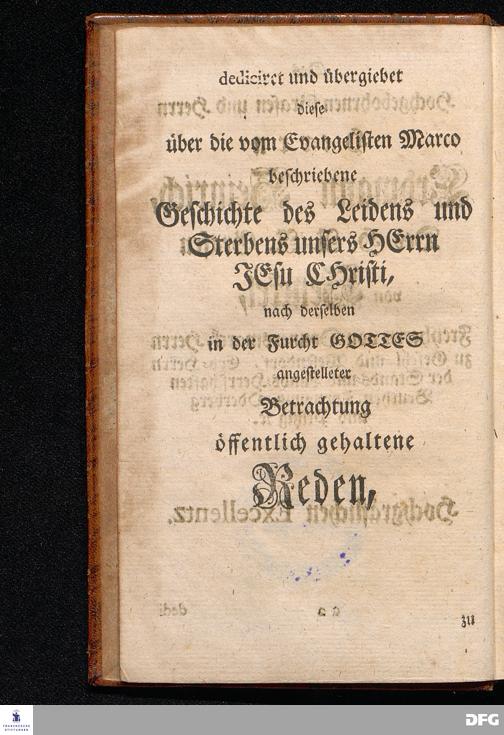 dediciret und übergiebet
diese
über die vom Evangelisten Marco
beschriebene
Geschichte des Leidens und
Sterbens unsers HErrn
JEsu CHristi,
nach derselben
in der Furcht GOTTES
angestelleter
Betrachtung
öffentlich gehaltene
Reden,
zu
FRANCKESCHE
STIFTUNGEN
DFG